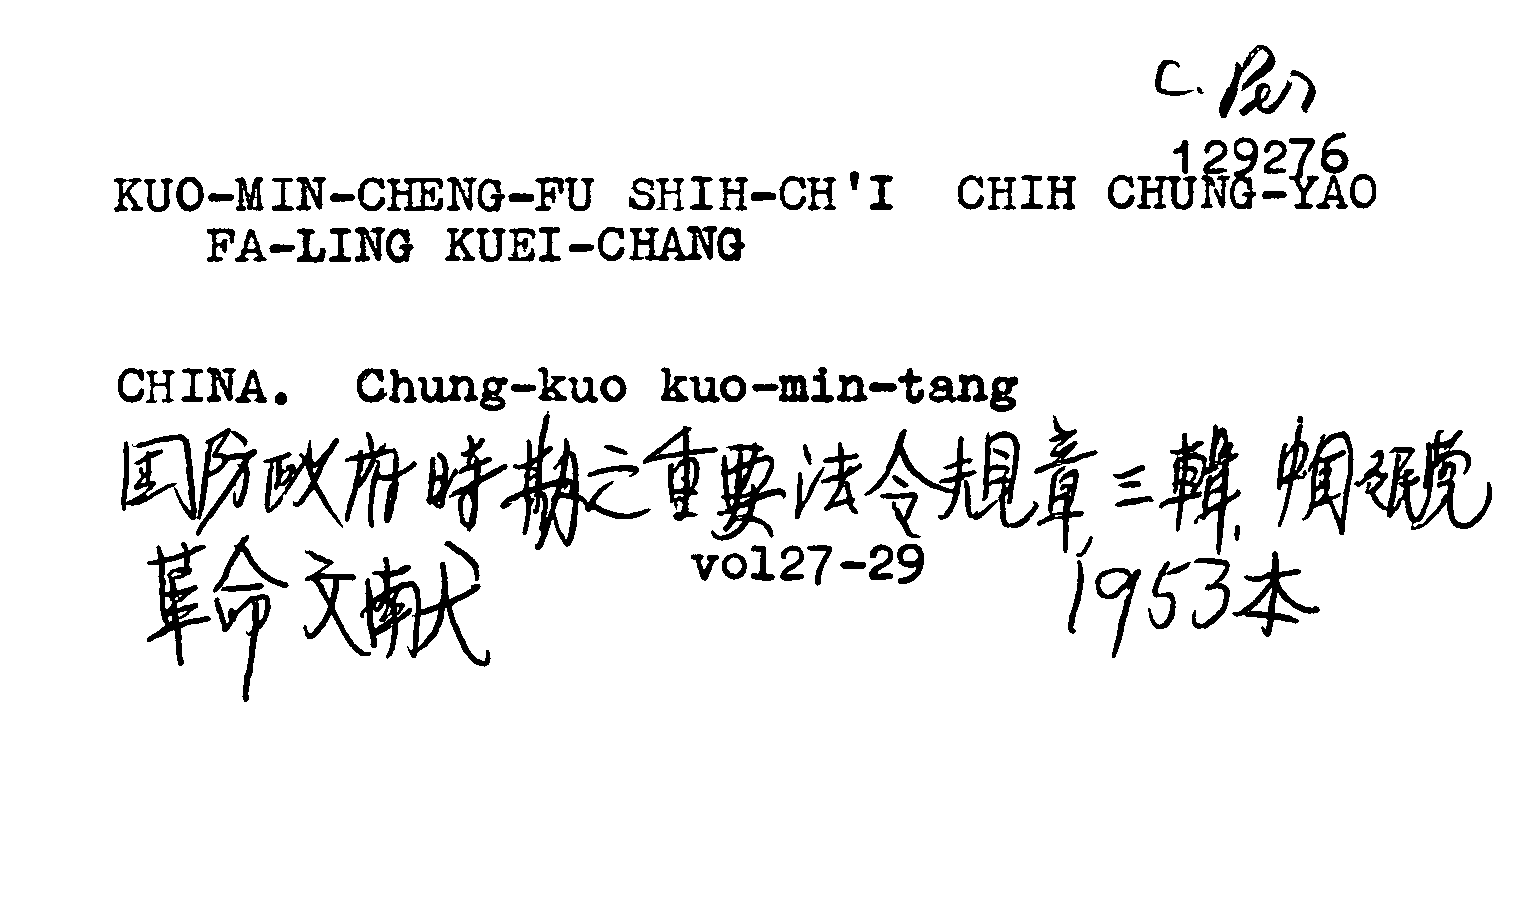 C. Per
129276
KUO-MIN-CHENG-FU SHIH-CH'I CHIH CHUNG-YAO
FA-LING KUEI-CHANG
CHINA. Chung-kuo kuo-min-tang
国防政府時期之重要法令規章,三輯,中国国民党
革命文献 vol27-29 1953本